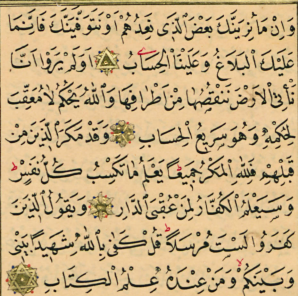 وَاِنْ مَا نُرِيَنَّكَ بَعْضَ الَّذٖى نَعِدُهُمْ اَوْ نَتَوَفَّيَنَّكَ فَاِنَّمَا
عَلَيْكَ الْبَلَاغُ وَعَلَيْنَا الْحِسَابُ اَوَلَمْ يَرَوْا اَنَّا
نَأْتِى الْاَرْضَ نَنْقُصُهَا مِنْ اَطْرَافِهَا وَاللّٰهُ يَحْكُمُ لَا مُعَقِّبَ
لِحُكْمِهٖ وَهُوَ سَرِيعُ الْحِسَابِ وَقَدْ مَكَرَ الَّذٖينَ مِنْ
قَبْلِهِمْ فَلِلّٰهِ الْمَكْرُ جَمِيعًا يَعْلَمُ مَا تَكْسِبُ كُلُّ نَفْسٍ
وَسَيَعْلَمُ الْكُفَّارُ لِمَنْ عُقْبَى الدَّارِ وَيَقُولُ الَّذٖينَ
كَفَرُوا لَسْتَ مُرْسَلًا قُلْ كَفٰى بِاللّٰهِ شَهِيدًا بَيْنِى
وَبَيْنَكُمْ وَمَنْ عِنْدَهُ عِلْمُ الْكِتَابِ